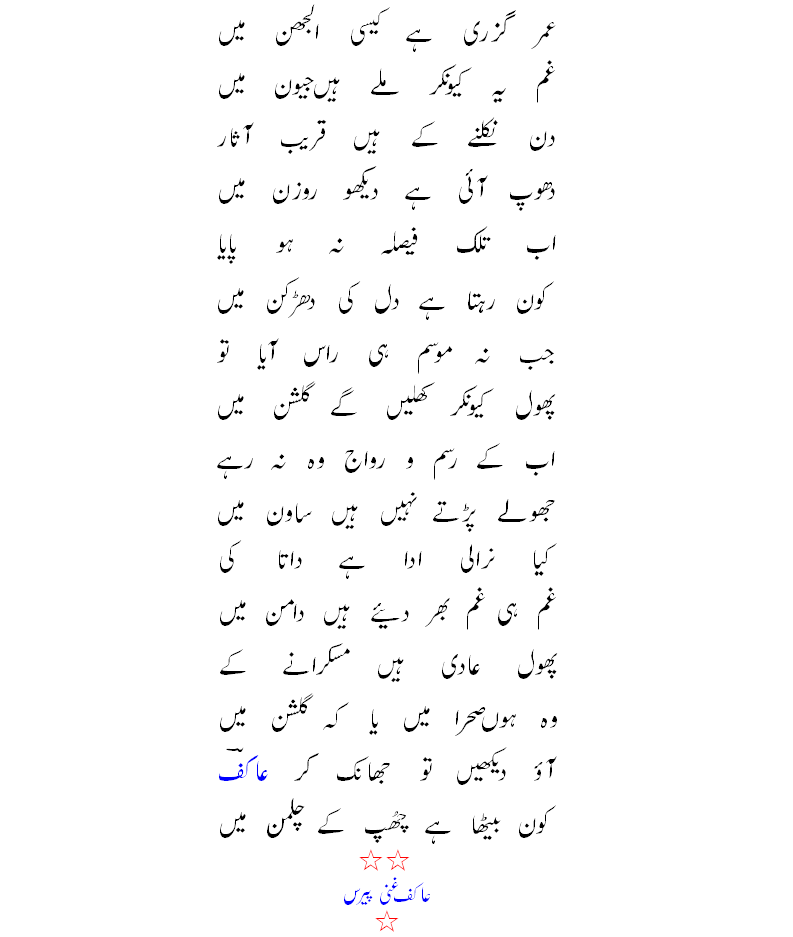 عمر گزری ہے کیسی الجھن میں
غم یہ کیونکر ملے ہیں جیون میں
دن نکلنے کے ہیں قریب آثار
دھوپ آئی ہے دیکھو روزن میں
اب تلک فیصلہ نہ ہو پایا
کون رہتا ہے دل کی دھڑکن میں
جب نہ موسم ہی راس آیا تو
پھول کیونکر کھلیں گے گلشن میں
اب کے رسم و رواج وہ نہ رہے
جھولے پڑتے نہیں ہیں ساون میں
کیا نرالی ادا ہے داتا کی
غم ہی غم بھر دیئے ہیں دامن میں
پھول عادی ہیں مسکرانے کے
وہ ہوں صحرا میں یا کہ گلشن میں
آؤ دیکھیں تو جھانک کر عاکفؔ
کون بیٹھا ہے چھُپ کے چلمن میں
☆☆
عاکف غنی پیرس
☆